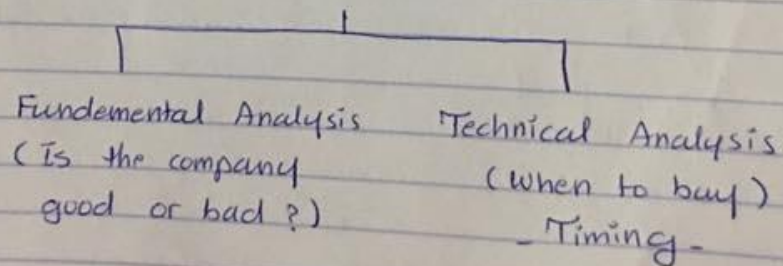 Fundemental Analysis
(Is the company
good or bad ?)
Technical Analysis
(When to buy)
- Timing -